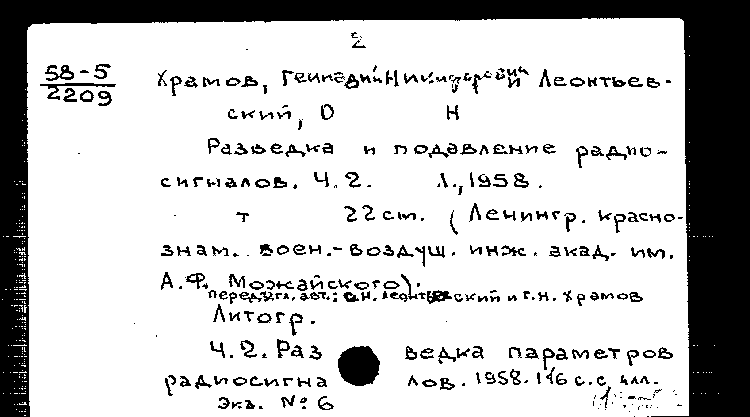 2
58-5
2209
Храмов, Геннадий Никифорович и Леонтьев-
ский, О Н
Разведка и подавление радио-
сигналов. Ч.2. Л., 1958.
т 22 cm. (Ленингр. красно-
знам. воен.-воздуш. инж. акад. им.
А.Ф. Можайского).
перед загл. авт.: О.Н. Леонтьевский и Г.Н. Храмов
Литогр.
Ч.2. Раз ведка параметров
радиосигна лов. 1958. 146 с. с илл.
Экз. № 6